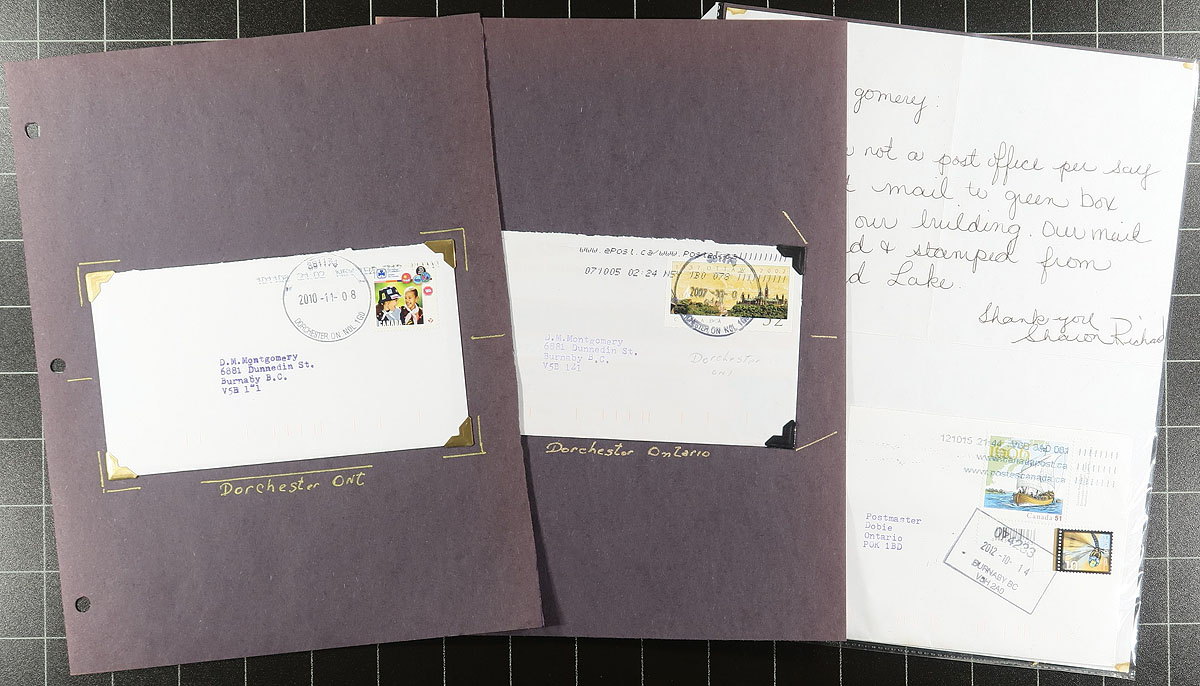 2010-11-08
DORCHESTER ON N0L 1G0
D.M.Montgomery
6881 Dunnedin St.
Burnaby B.C.
V5B 1
Dorchester ONT
071005 02:24
DORCHESTER ON N0L
D.M.Montgomery
6881 Dunnedin St.
Burnaby B.C.
V5B
Dorchester
ONT
Dorchester Ontario
gomery:
not a post office per say
mail to green box
our building. Our mail
d & stamped from
d Lake.
Thank you
Sharon
121015 21:44
www.canadapost.ca
www.postescanada.ca
Canada 51
Postmaster
Dobie
Ontario
P0K 1B0
2012-10-14
BURNABY BC
V5H 2A0
10